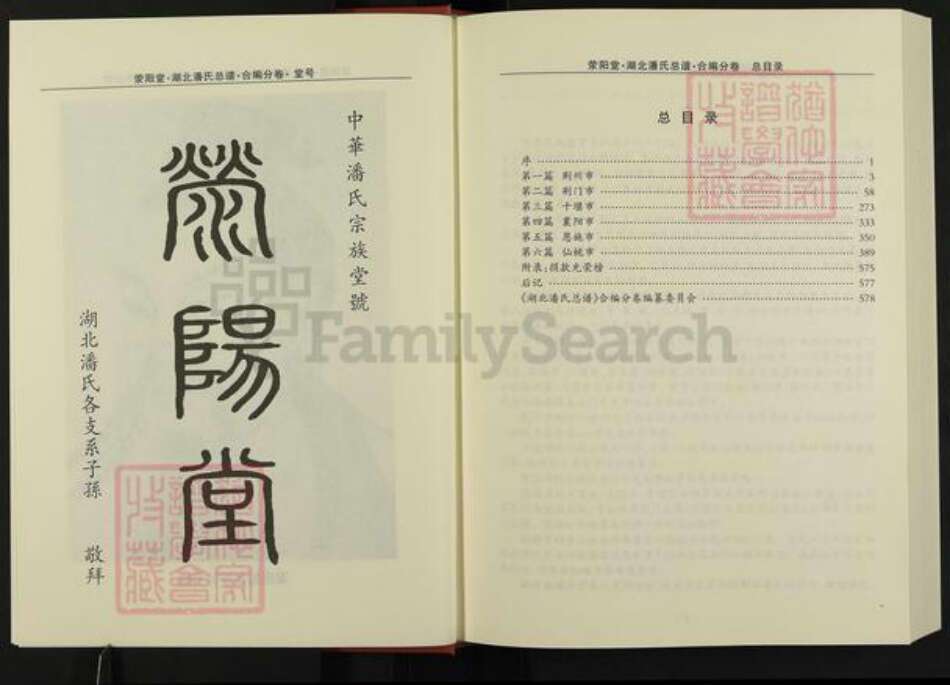 荥阳堂·湖北潘氏总谱·合编分卷·堂号
中華潘氏宗族堂號
滎陽堂
湖北潘氏各支系子孫 敬拜
荥阳堂·湖北潘氏总谱·合编分卷 总目录
总目录
序 …… 1
第一篇 荆州市 …… 3
第二篇 荆门市 …… 58
第三篇 十堰市 …… 273
第四篇 襄阳市 …… 333
第五篇 恩施市 …… 350
第六篇 仙桃市 …… 389
附录:捐款光荣榜 …… 575
后记 …… 577
《湖北潘氏总谱》合编分卷编纂委员会 …… 578
FamilySearch